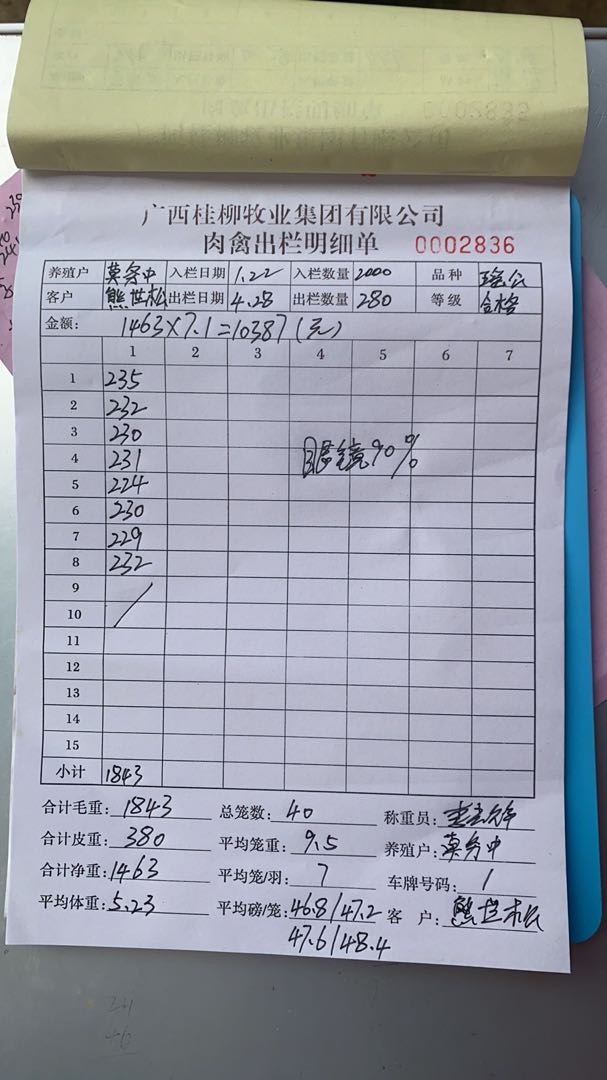 0002835
广西桂柳牧业集团有限公司
肉禽出栏明细单 0002836
养殖户 莫务中 入栏日期 1.22 入栏数量 2000 品种 瑶公
客户 熊世松 出栏日期 4.28 出栏数量 280 等级 合格
金额: 1463×7.1=10387(元)
1 2 3 4 5 6 7
1 235
2 232
3 230
4 231 眼镜90%
5 224
6 230
7 229
8 232
9
10
11
12
13
14
15
小计 1843
合计毛重: 1843 总笼数: 40 称重员:
合计皮重: 380 平均笼重: 9.5 养殖户: 莫务中
合计净重: 1463 平均笼/羽: 7 车牌号码: /
平均体重: 5.23 平均磅/笼: 46.8/47.2 客 户: 熊世松
47.6/48.4